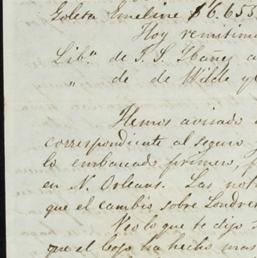 Goleta Emeline $6.653
Hoy remitimo
Lib.ª de J. S. Ybáñez a
" de de Wilde y
Hemos avisado
correspondiente al seguro
lo embarcado primero,
en N. Orleans. Las not
que el cambio sobre Londre
Veo lo que te dijo
que el lego ha hecho mas